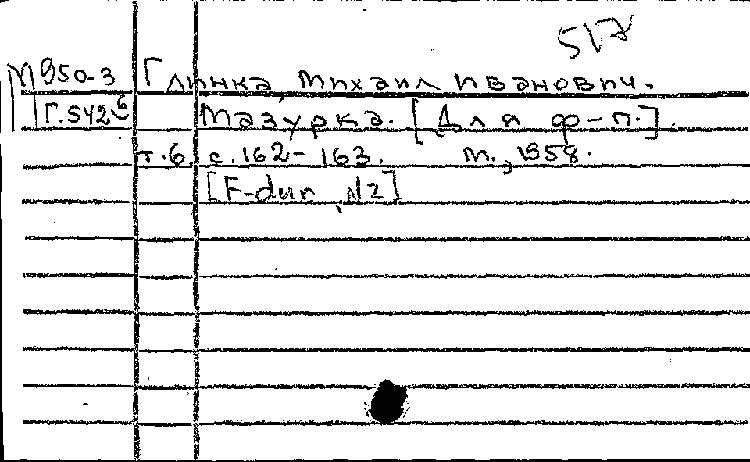 517
М950-3 Глинка, Михаил Иванович.
Г.542-б Мазурка. [Для ф-п.].
т.6. с.162-163. М., 1958.
[F-dur, 1/2]